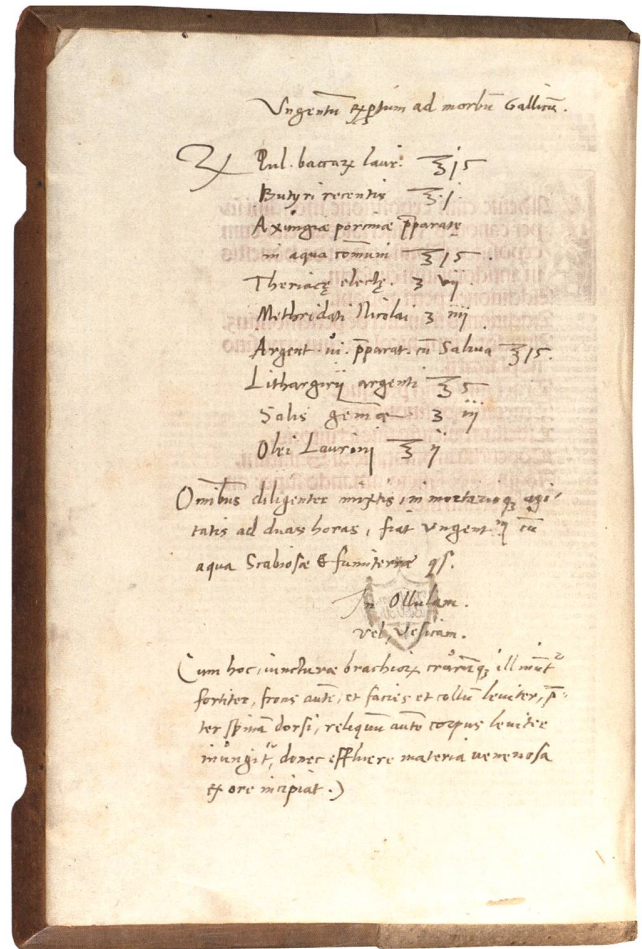 Vngentũ exptum ad morbũ Gallicũ.
℞ Pul. baccarꝝ lauri ℥ j ς
Butyri recentis ℥ · j
Axungiæ porcinæ p̃paratę
in aqua cõmuni ℥ j ς
Theriacę electę. ʒ vij.
Methridati Nicolai ʒ iiij
Argent. ui. p̃parat. cũ Saliua ℥ j ς.
Lithargirij argenti ℥ ς
Salis gemæ ʒ iij
Olei Laurinj ℥ ij
Omnibus diligenter mixtis, in mortarioqꝫ agi,
tatis ad duas horas, fiat vngent cũ
aqua Scabiosæ & fumiterræ qs.
In Ollulam.
vel, Vesicam.
Cum hoc, iuncturæ brachiorꝝ
fortiter, frons autẽ, et facies et collũ leuiter, p̃,
ter spinã dorsi, reliquũ autẽ corpus leuiter
inũngit, donec effluere materia uenenosa
ex ore incipiat.)